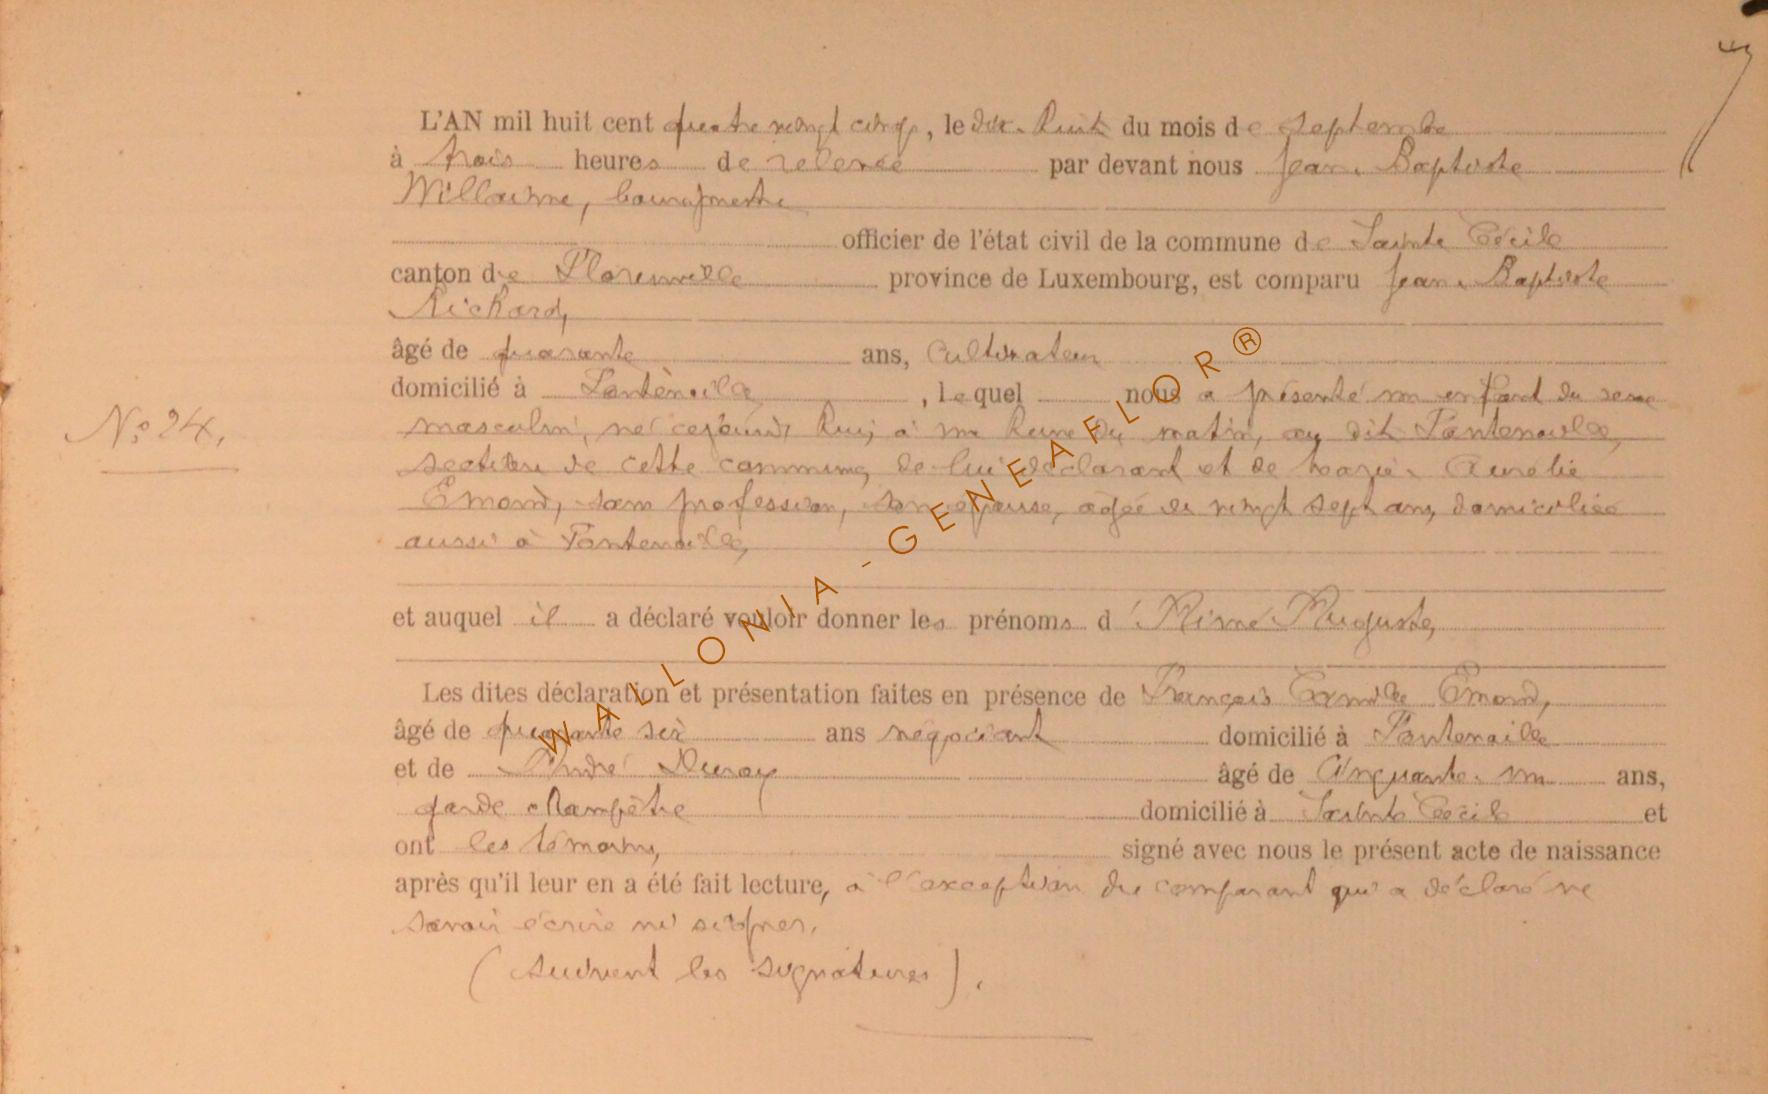 L'AN mil huit cent quatre vingt cinq, le dix-huit du mois de septembre
à trois heures de relevée par devant nous Jean-Baptiste
Willaime, bourgmestre
officier de l'état civil de la commune de Sainte Cécile
canton de Florenville province de Luxembourg, est comparu Jean-Baptiste
Richard,
âgé de quarante ans, cultivateur
domicilié à Fontenoille, lequel nous a présenté un enfant du sexe
N° 24.
masculin, né cejourd'hui, à une heure du matin, au dit Fontenoille,
section de cette commune, de lui déclarant et de Marie-Aurélie
Émond, sans profession, son épouse, âgée de vingt sept ans, domiciliée
aussi à Fontenoille,
et auquel il a déclaré vouloir donner les prénoms d'Aimé-Auguste,
Les dites déclaration et présentation faites en présence de François Camille Émond,
âgé de quarante six ans négociant domicilié à Fontenoille
et de André Duroy âgé de cinquante-un ans,
garde champêtre domicilié à Sainte Cécile et
ont les témoins, signé avec nous le présent acte de naissance
après qu'il leur en a été fait lecture, à l'exception du comparant qui a déclaré ne
savoir écrire ni signer.
(suivent les signatures).
WALLONIA-GENEAFLOR®